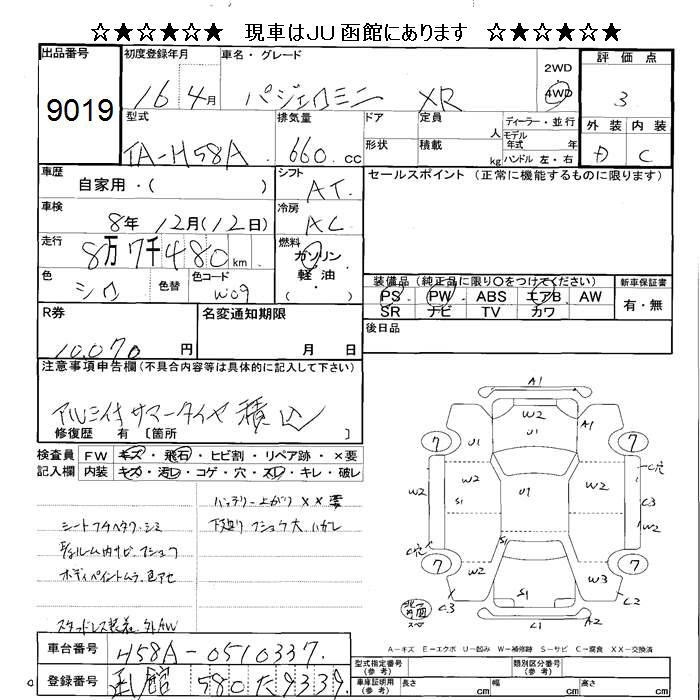 ☆★☆★☆★ 現車はJU函館にあります ☆★☆★☆★
出品番号 初度登録年月 車名・グレード 2WD 評価点
9019 16年4月 パジェロミニ XR 4WD 3
型式 排気量 ドア 定員 人 ディーラー・並行 外装 内装
TA-H58A 660.cc 形状 積載 kg モデル年式 年 ハンドル 左・右 D C
車歴 自家用・( ) シフト AT セールスポイント (正常に機能するものに限ります)
車検 8年12月(12日) 冷房 AC
走行 8万7千480km 燃料 ガソリン・軽油・( )
色 シロ 色替 色コード W09
装備品 (純正品に限り○をつけてください) 新車保証書
PS PW ABS エアB AW 有・無
SR ナビ TV カワ
R券 10.070円 名変通知期限 月 日 後日品
注意事項申告欄 (不具合内容等は具体的に記入して下さい)
アルミ付サマータイヤ積込
修復歴 有 〔箇所 〕
検査員 FW キズ・飛石・ヒビ割・リペア跡・×要
記入欄 内装 キズ・汚レ・コゲ・穴・スレ・キレ・破レ
バッテリー上がり××要
シートフチヘタワ・シミ 下廻りフショク大ハガレ
ボディペイントムラ.色アセ
スタッドレス装着 外AW
A1
W2
U1 U1 A1
7 7
C穴
W2 S1 U1 W2 C3
W2
S1
C穴
7 W2 W3 7
C3 S1 C2
C1 A2
A-キズ E-エクボ U-凹み W-補修跡 S-サビ C-腐食 XX-交換済
車台番号 H58A-0510337.
登録番号 函館 580 た 9339
型式指定番号(参考) 類別区分番号(参考)
車庫証明用(参考) 長さ cm 幅 cm 高さ cm